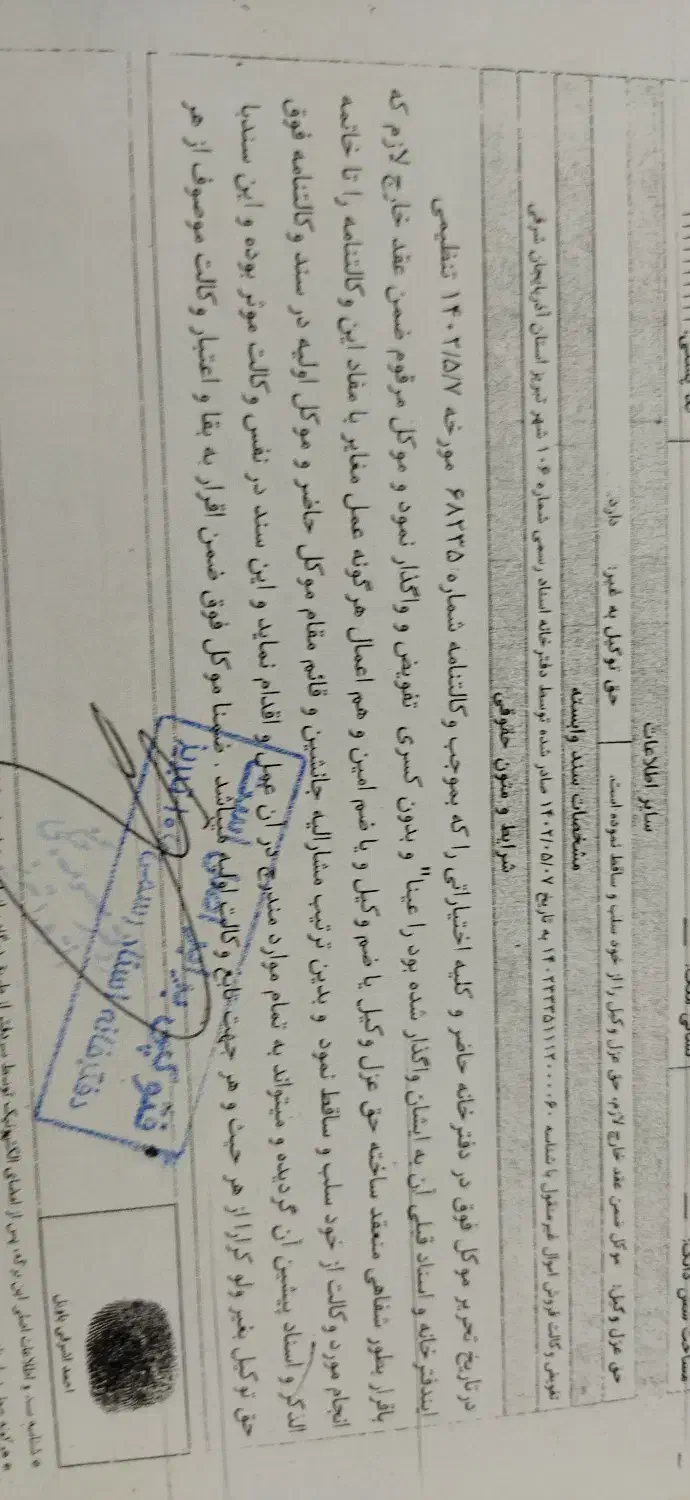 سایر اطلاعات
حق عزل وکیل: موکل ضمن عقد خارج لازم، حق عزل وکیل را از خود سلب و ساقط نموده است.
حق توکیل به غیر: دارد.
مشخصات سند وابسته
تفویض وکالت فروش اموال غیرمنقول با شناسه به تاریخ ۱۴۰۲/۰۵/۰۷ صادر شده توسط دفترخانه اسناد رسمی شماره ۱۰۶ شهر تبریز استان آذربایجان شرقی
شرایط و متون حقوقی
در تاریخ تحریر موکل فوق در دفترخانه حاضر و کلیه اختیاراتی را که بموجب وکالتنامه شماره ۶۸۲۳۵ مورخه ۱۴۰۲/۵/۷ تنظیمی
ایندفترخانه و اسناد قبلی آن به ایشان واگذار شده بود را عینا" و بدون کسری تفویض و واگذار نمود و موکل مرقوم ضمن عقد خارج لازم که
باقرار بطور شفاهی منعقد ساخته حق عزل وکیل یا ضم وکیل و یا ضم امین و هم اعمال هرگونه عمل مغایر با مفاد این وکالتنامه را تا خاتمه
انجام مورد وکالت از خود سلب و ساقط نمود و بدین ترتیب مشارالیه جانشین و قائم مقام موکل حاضر و موکل اولیه در سند وکالتنامه فوق
الذکر و اسناد پیشین آن گردیده و میتواند به تمام موارد مندرج در آن عمل و اقدام نماید و این سند در نفس وکالت موثر بوده و این سند با
حق توکیل بغیر ولو کرارا از هر حیث و هر جهت تابع وکالت اولیه میباشد. ضمنا موکل فوق ضمن اقرار به بقا و اعتبار وکالت موصوف از هر
دفترخانه اسناد رسمی
تبریز
احمد اشرفی باویل